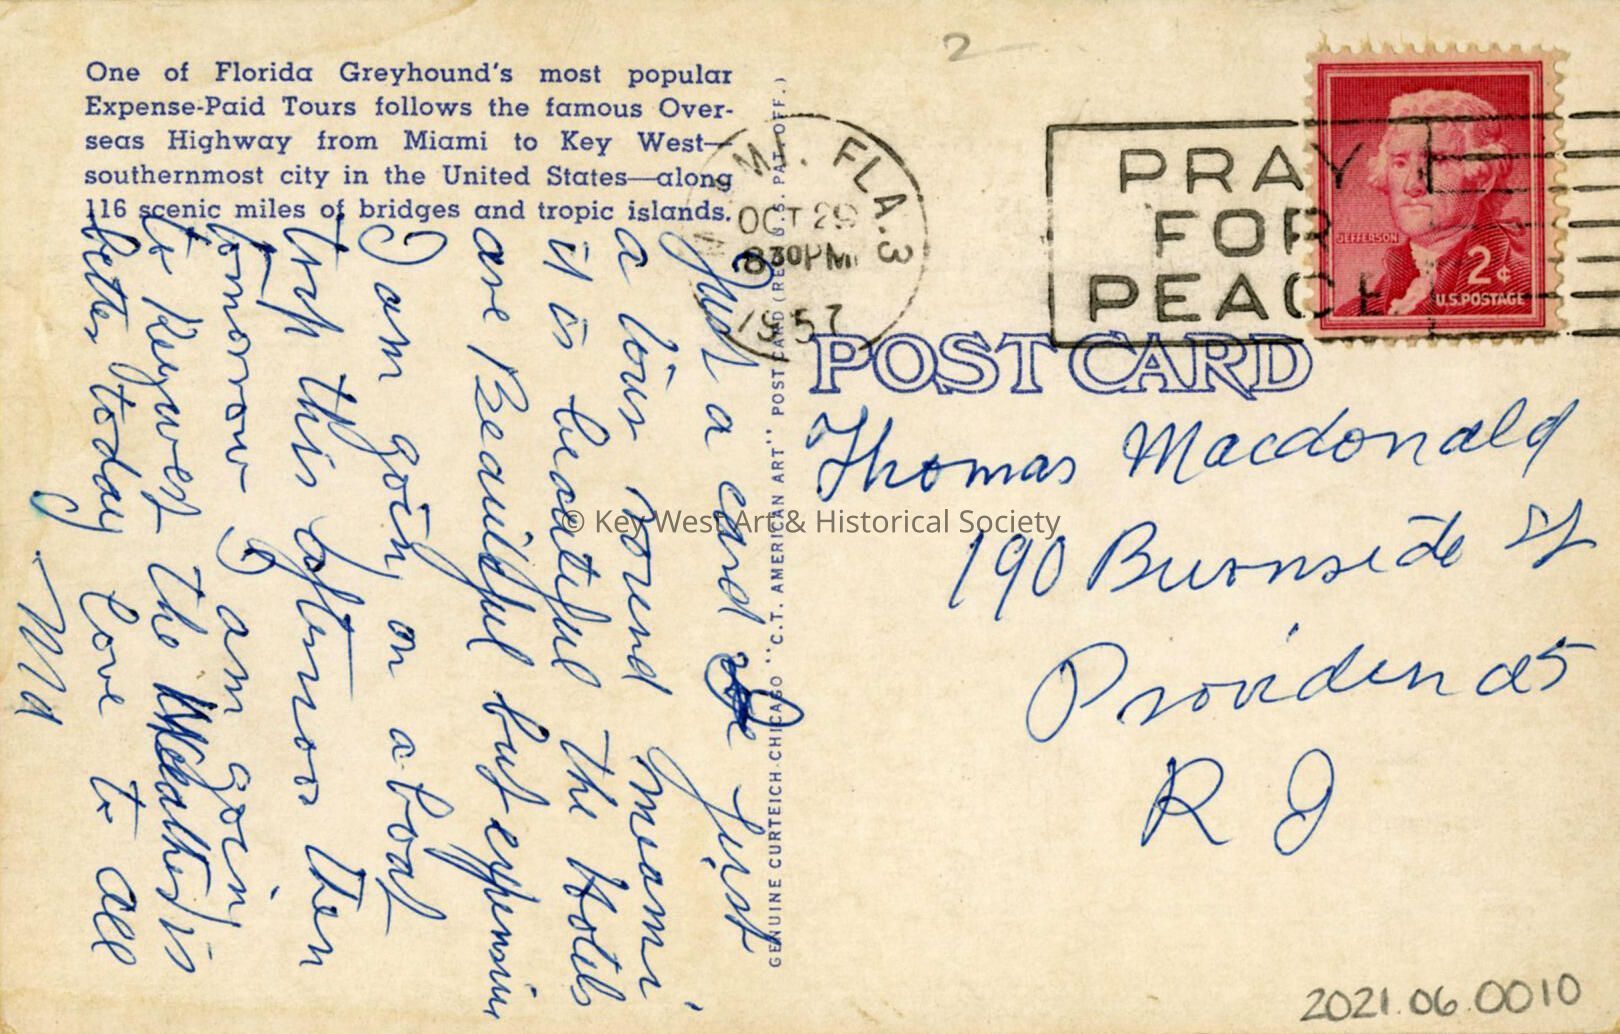 One of Florida Greyhound's most popular
Expense-Paid Tours follows the famous Over-
seas Highway from Miami to Key West—
southernmost city in the United States—along
116 scenic miles of bridges and tropic islands.
Just a card
first
a tour round miami
it is beautiful the Hotels
are Beautiful but expensiv
I am going on a boat
trip this afternoon then
tomorrow I am going
to Keywest the Weather is
better today love to all
Ma
GENUINE CURTEICH-CHICAGO "C.T. AMERICAN ART" POST CARD (REG. U.S. PAT. OFF.)
MIAMI, FLA. 3
OCT 29
830 PM
1957
PRAY
FOR
PEACE
JEFFERSON
2¢
U.S. POSTAGE
POST CARD
Thomas Macdonald
190 Burnside St
Providence
R I
© Key West Art & Historical Society
2
2021.06.0010